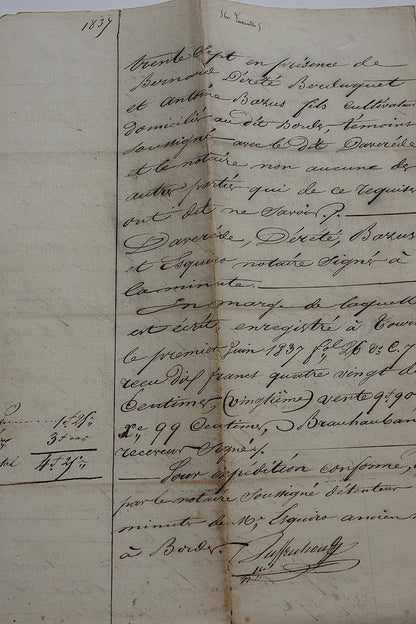 1837
trente Sept en présence de
Bernard Dérété Borduquet
et Antoine Bazus fils cultivateurs
domiciliés au dit Bordes, témoins
Soussignés avec le dit Daverède
et le notaire non aucune des
autres parties qui de ce requises
ont dit ne Savoir.
Daverède, Dérété, Bazus
et Esquiro notaire Signés à
la minute.
En marge de laquelle
est écrit, enregistré à Tour
le premier Juin 1837 fol 26 v. C. 7
recu dix francs quatre vingt di
Centimes (vingtième) vente 9f 90
99 Centimes, Brauhauban
receveur Signé.
Pour expédition conforme
par le notaire Soussigné détenteur
minutes de Me Esquiro ancien
à Bordes.
1f 25c
3f
4f 25c